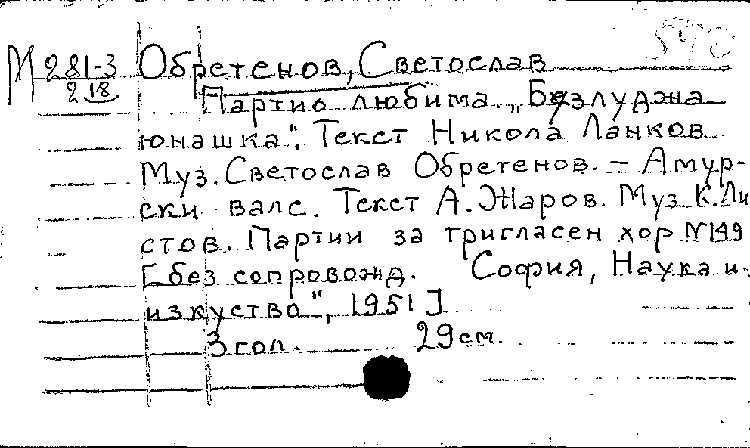 М 281-3 Обретенов, Светослав
2 18 Партийо любима. „Безлуджа
юнашка". Текст Никола Ланков
Муз. Светослав Обретенов. – Амур-
ски валс. Текст А. Жаров. Муз. К. Ли
стов. Партии за тригласен хор №149
[без сопровожд. София, Наука и
изкуство", 1951]
3 гол. 29 см.